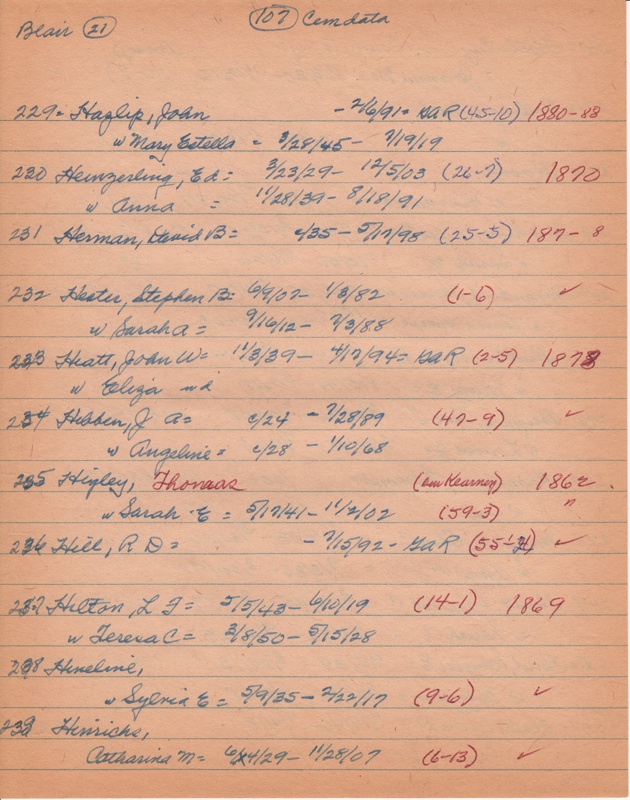 Blair (21) (107) Cem data
229= Hazlip, John - 2/6/91= GAR (45-10) 1880-83
w Mary Estella = 3/28/45 - 7/19/19
230 Heinzerling, Ed= 3/23/29 - 12/5/03 (26-7) 1870
w Anna = 11/28/39 - 8/18/91
231 Herman, David B= c/35 - 5/17/98 (25-5) 187-8
232 Hester, Stephen B= 6/9/07 - 1/3/82 (1-6) ✓
w Sarah A= 9/16/12 - 7/3/88
233 Hiatt, John W= 11/3/39 - 4/17/94= GAR (2-5) 1873
w Eliza nd
234 Hibben, J A= c/24 - 7/28/89 (47-9) ✓
w Angeline= c/28 - 1/10/68
235 Higley, Thomas (Kearney) 1862.
w Sarah E = 5/17/41 - 11/2/02 (59-3) "
236 Hill, R D= - 7/15/92 - GAR (55-2) ✓
237 Hilton, L F= 5/5/43 - 6/10/19 (14-1) 1869
w Teresa C= 3/8/50 - 5/15/28
238 Hineline,
w Sylvia E = 5/9/35 - 2/22/17 (9-6) ✓
239 Hinrichs,
Catharina M= 6/4/29 - 11/28/07 (6-13) ✓